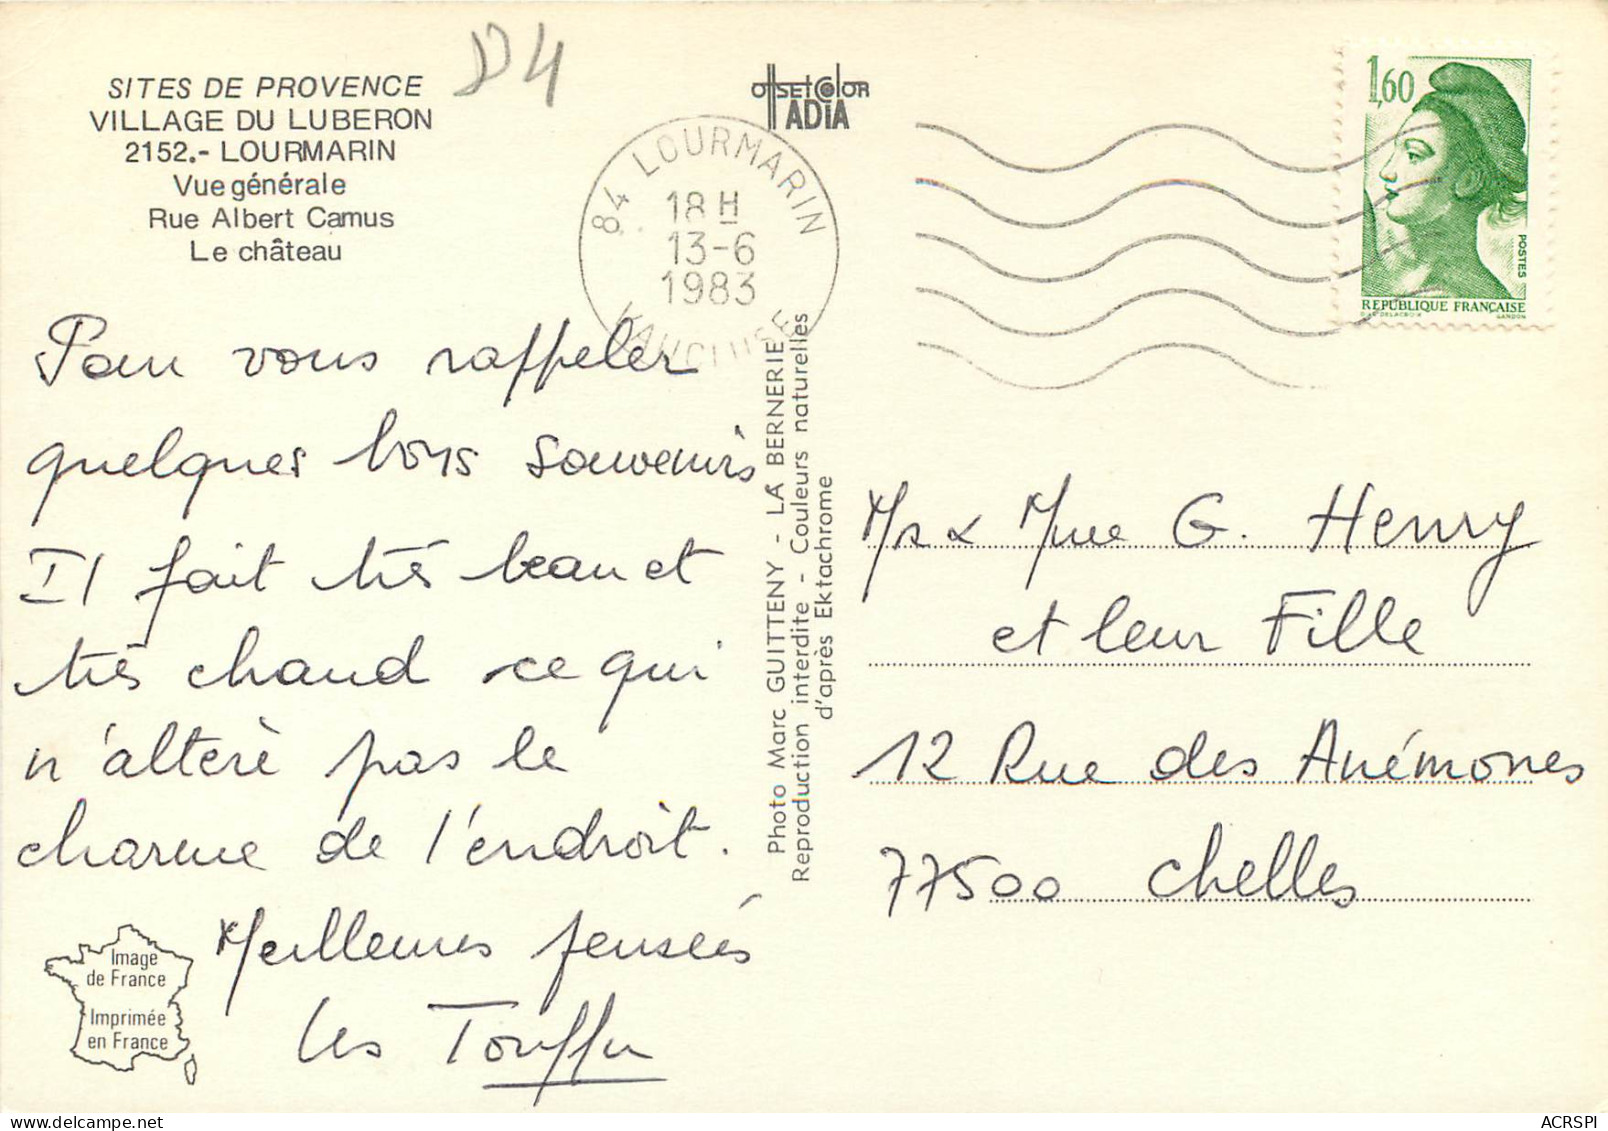 SITES DE PROVENCE
VILLAGE DU LUBERON
2152.- LOURMARIN
Vue générale
Rue Albert Camus
Le château
D4
offset color
ADIA
84 LOURMARIN
18 H
13-6
1983
VAUCLUSE
1,60
POSTES
REPUBLIQUE FRANÇAISE
D'AP. DELACROIX
GANDON
Pour vous rappeler
quelques bons souvenirs
Il fait très beau et
très chaud ce qui
n'altère pas le
charme de l'endroit.
Meilleures pensées
Les
Image
de France
Imprimée
en France
Photo Marc GUITTENY - LA BERNERIE
Reproduction interdite - Couleurs naturelles
d'après Ektachrome
Mr & Mme G. Henry
et leur Fille
12 Rue des Anémones
77500 Chelles
ACRSPI